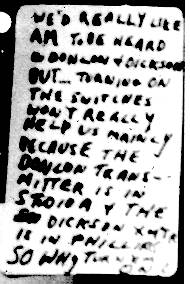 WE'D REALLY LIKE
AM TO BE HEARD
DONLON & DICKSON
BUT... TURNING ON
THE SWITCHES
WON'T REALLY
HELP US MAINLY
BECAUSE THE
DONLON TRANS-
MITTER IS IN
& THE
DICKSON XMTR
IS IN
SO WHY TURN